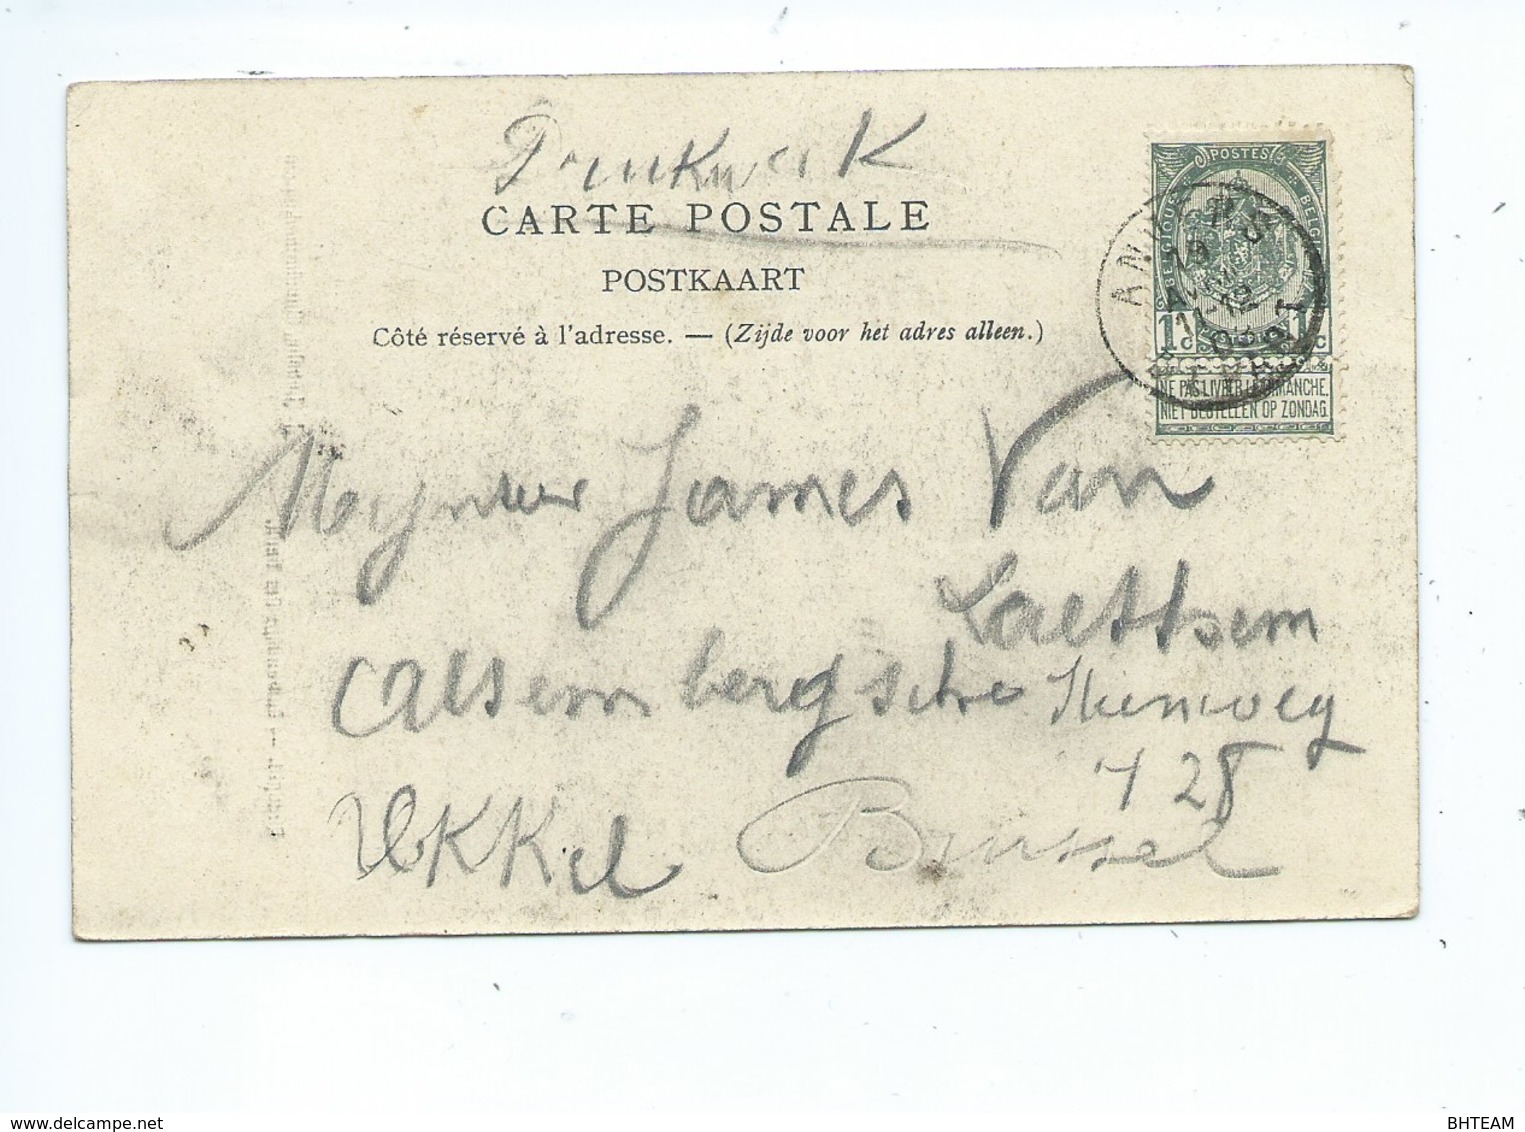 Drukwerk
CARTE POSTALE
POSTKAART
Côté réservé à l'adresse. — (Zijde voor het adres alleen.)
POSTES
BELGIQUE BELGIË
1c 1c
NE PAS LIVRER LE DIMANCHE.
NIET BESTELLEN OP ZONDAG.
ANVERS
Mynheer James Van
Laethem
Alsembergsche Steenweg
728
Ukkel Brussel
delcampe.net
BHTEAM